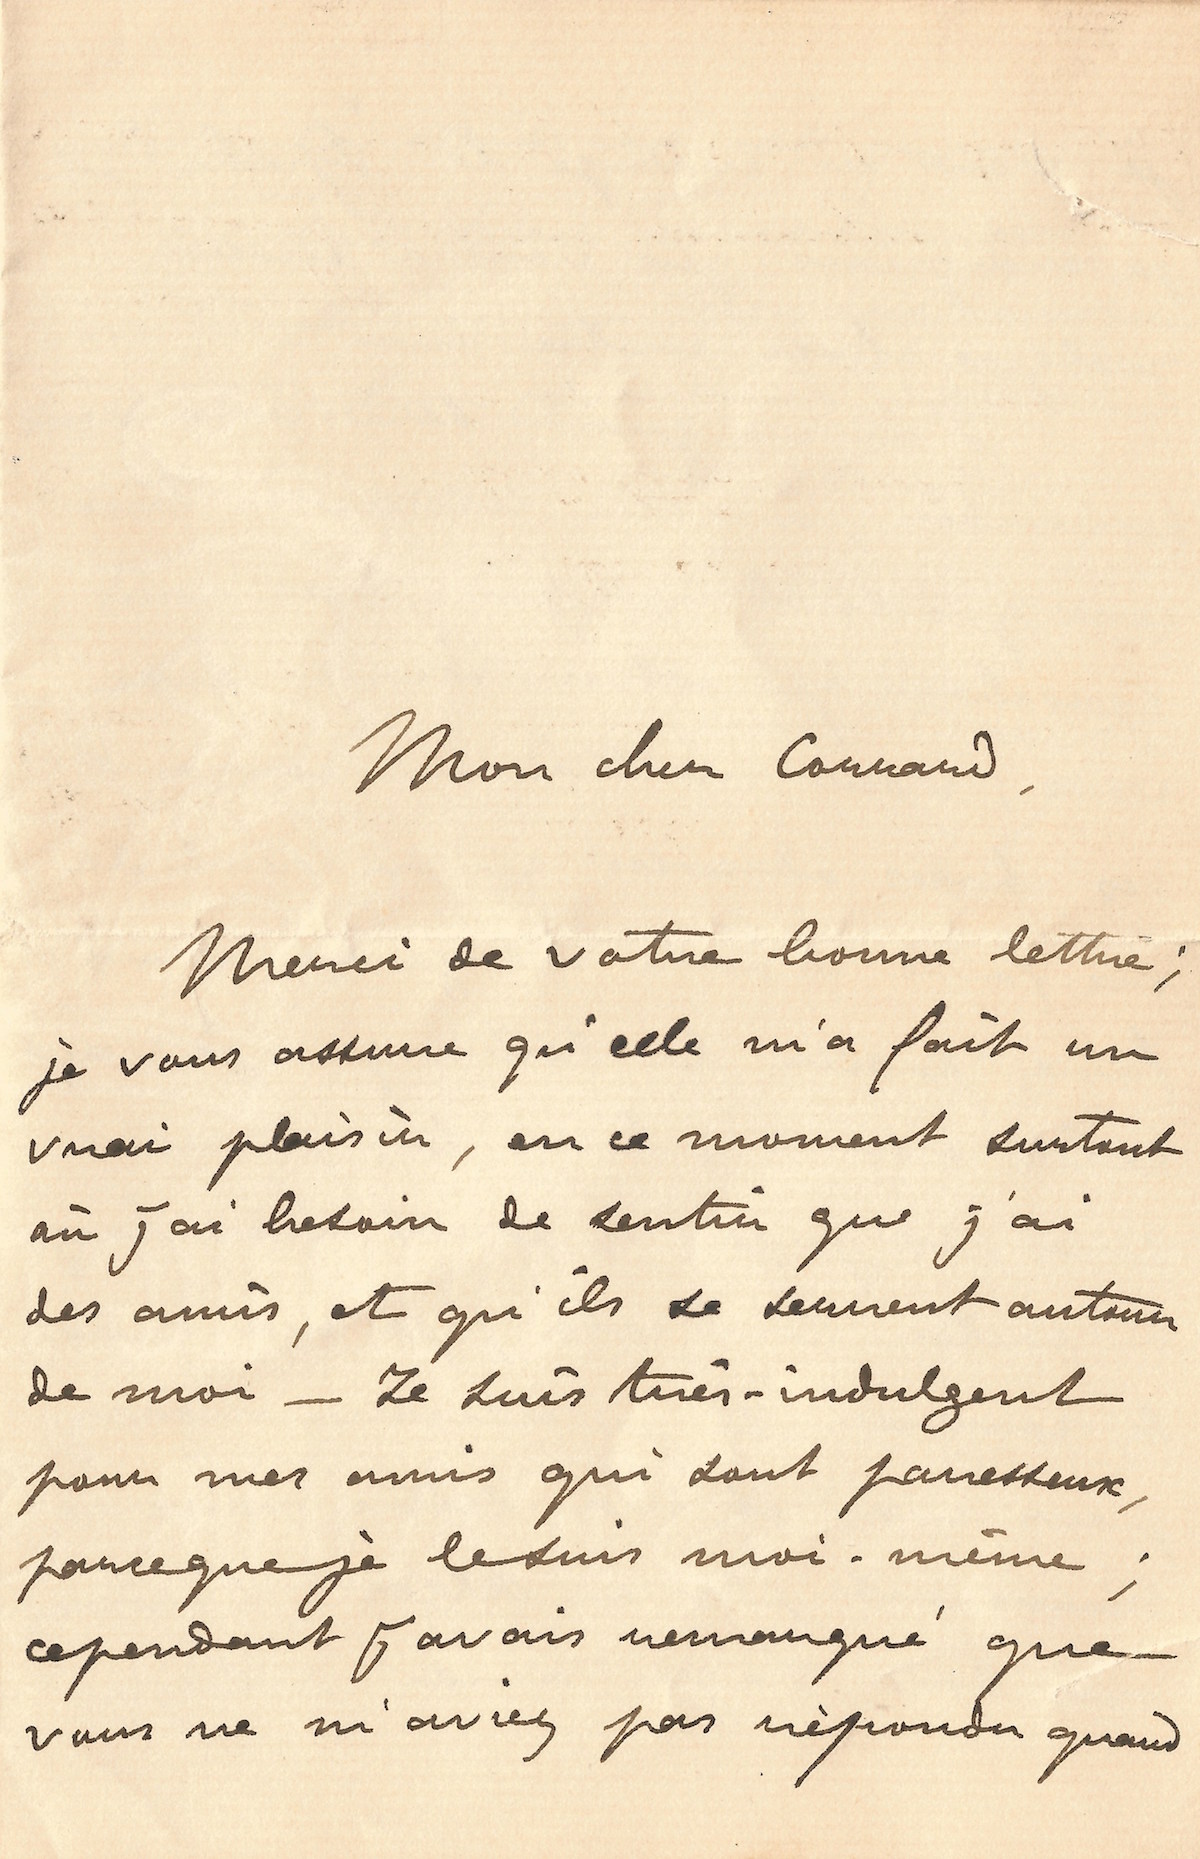 Mon cher Conrard,
Merci de votre bonne lettre ;
je vous assure qu'elle m'a fait un
vrai plaisir, en ce moment surtout
où j'ai besoin de sentir que j'ai
des amis, et qu'ils se serrent autour
de moi — Je suis très-indulgent
pour mes amis qui sont paresseux,
parceque je le suis moi-même ;
cependant j'avais remarqué que
vous ne m'aviez pas répondu quand